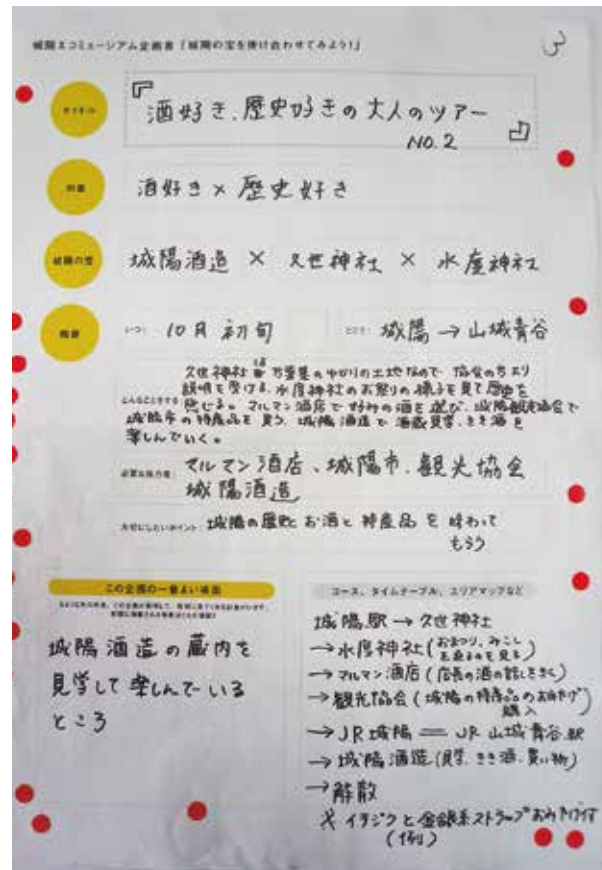 城陽エコミュージアム企画書「城陽の宝を掛け合わせてみよう！」
3
タイトル
『酒好き、歴史好きの大人のツアー
NO.2』
対象
酒好き×歴史好き
城陽の宝
城陽酒造 × 久世神社 × 水度神社
概要
いつ: 10月初旬
どこで: 城陽→山城青谷
久世神社は万葉集のゆかりの土地なので 協会の方より
説明を受ける。水度神社のお祭りの様子を見て歴史を
どんなことをする
感じる。マルマン酒店で好みの酒を選び、城陽観光協会で
城陽市の特産品を買う。城陽酒造で酒蔵見学、きき酒を
楽しんでいく。
必要な協力者:
マルマン酒店、城陽市、観光協会
城陽酒造
大切にしたいポイント: 城陽の歴史とお酒と特産品を味わって
もらう
この企画の一番よい場面
城陽酒造の蔵内を
見学して楽しんでいる
ところ
コース、タイムテーブル、エリアマップなど
城陽駅→久世神社
→水度神社(おまつり、みこし
を見る)
→マルマン酒店(店長の酒の話しをきく)
→観光協会(城陽の特産品のおみやげ
購入)
→JR城陽＝JR山城青谷駅
→城陽酒造(見学、きき酒、買い物)
→解散
(例)